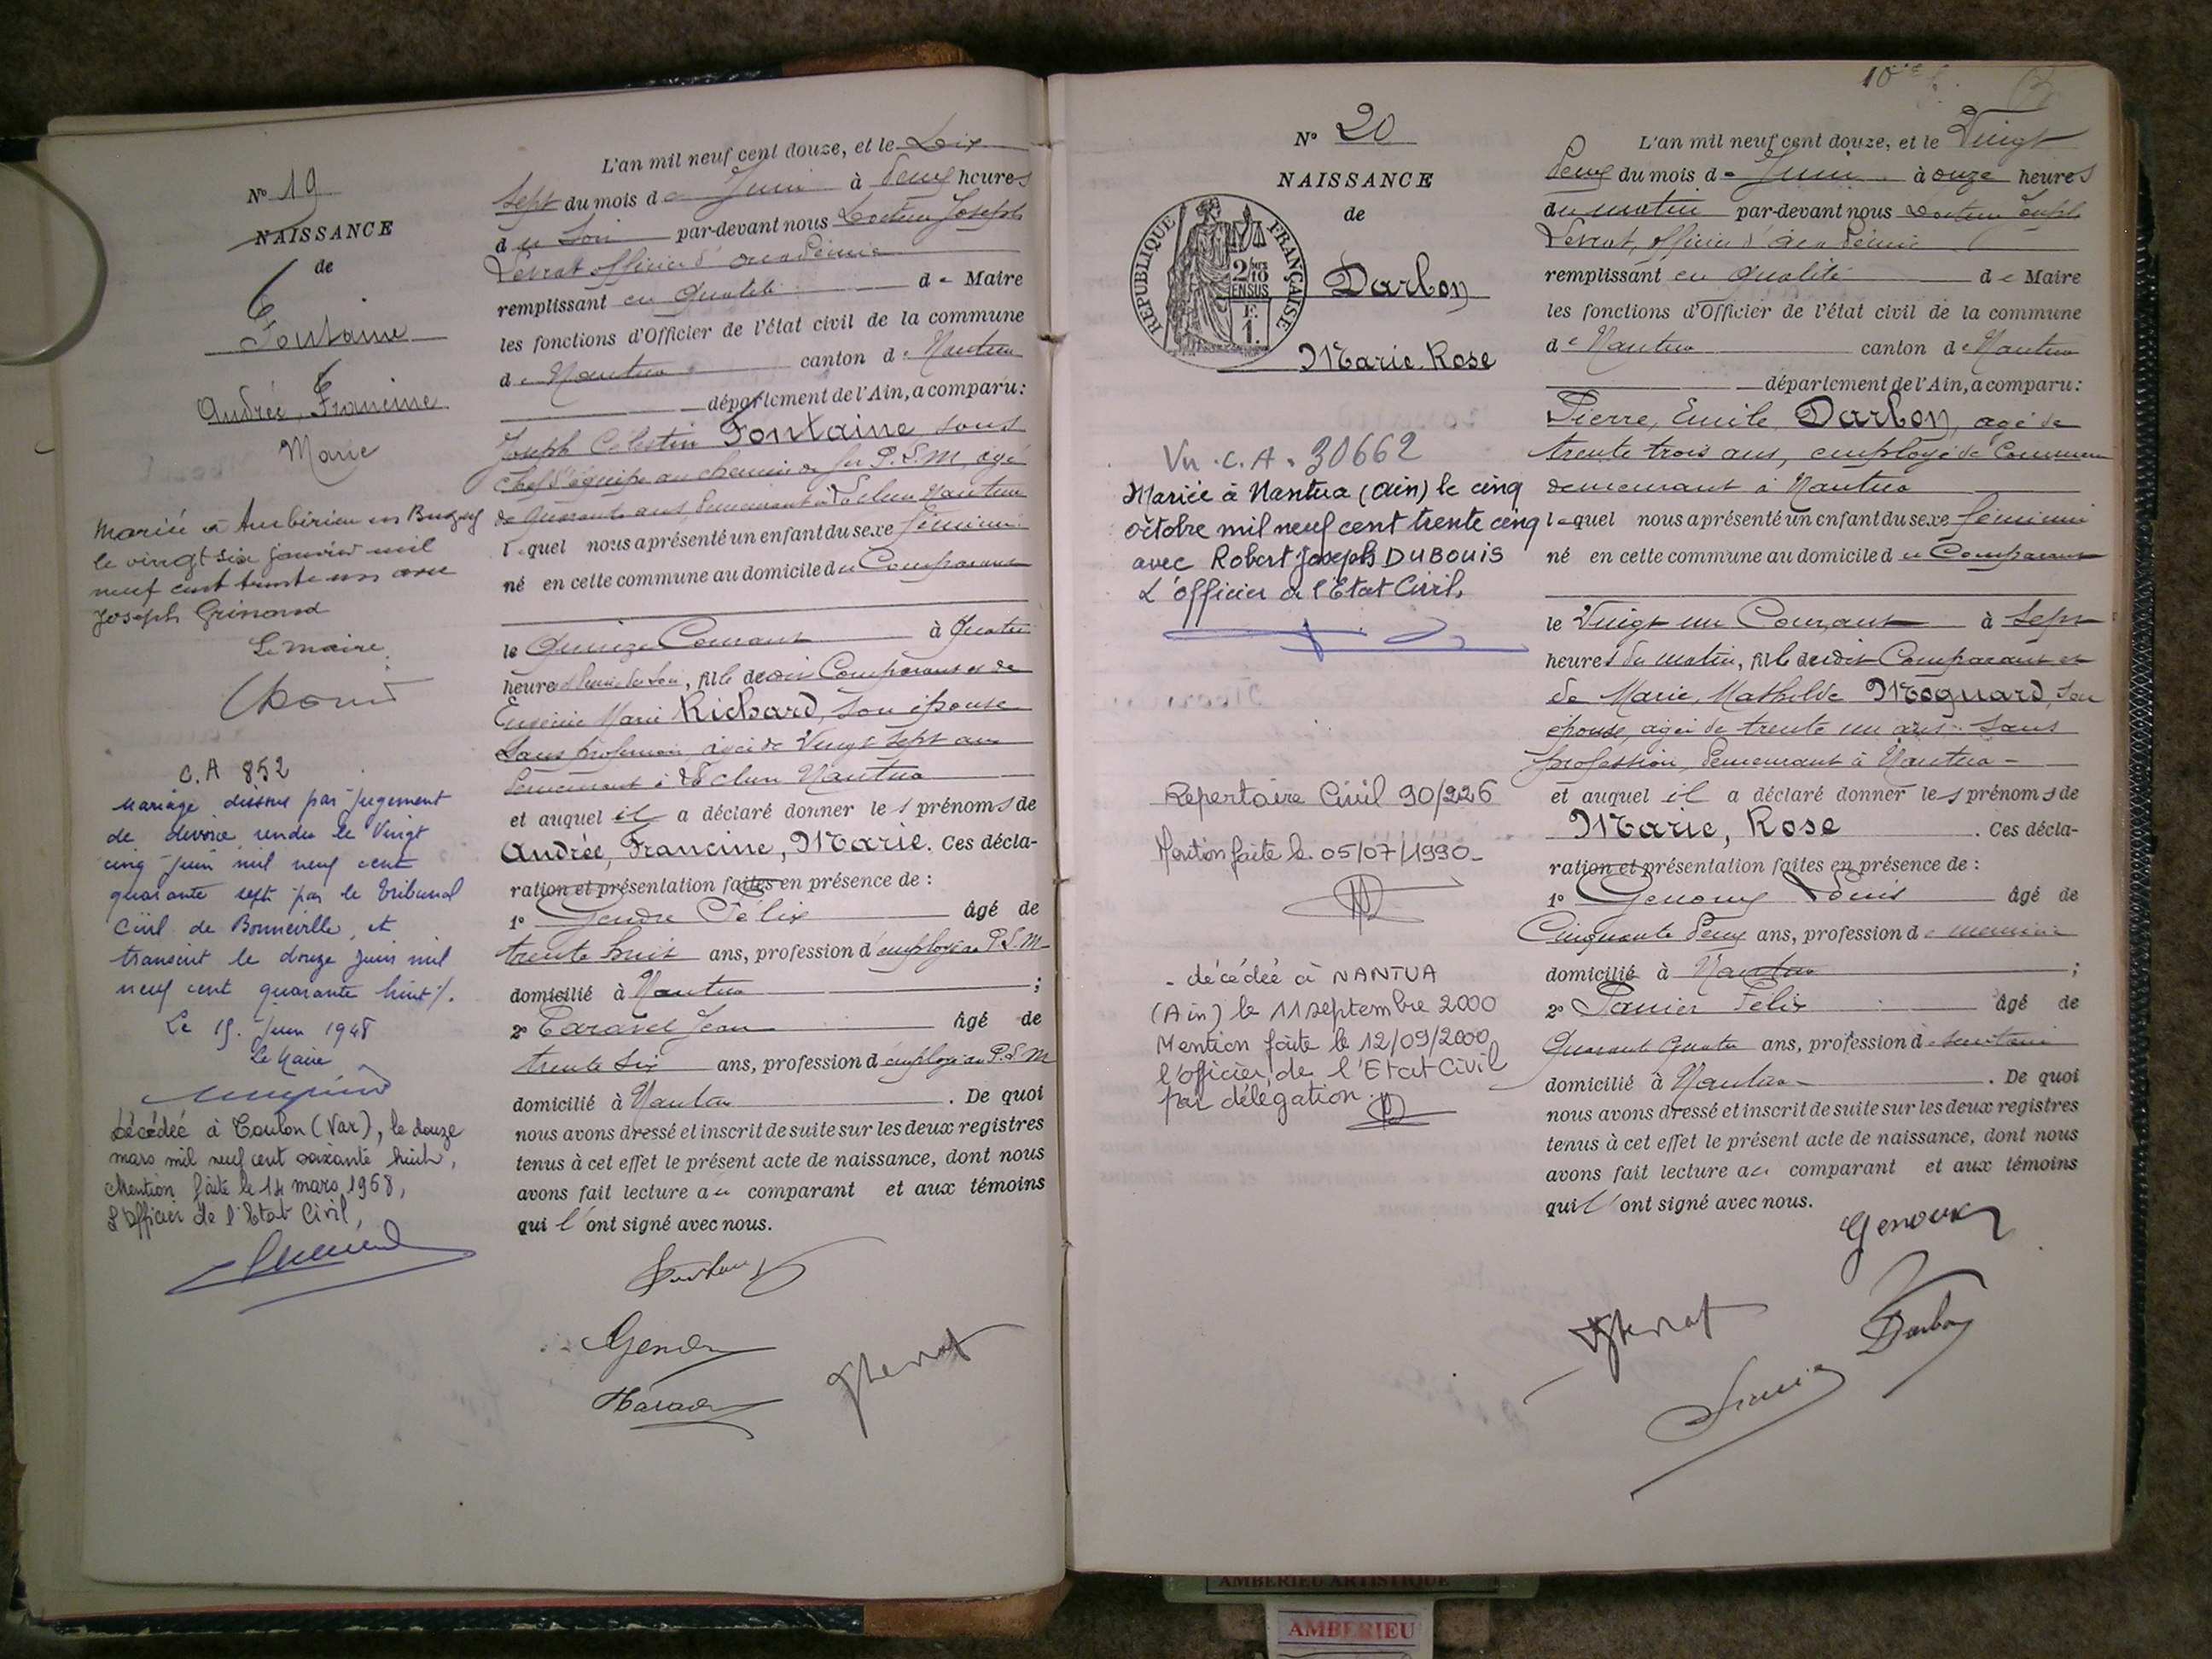 N° 19
NAISSANCE
de
Fontaine
Andrée, Francine
Marie
Mariée à Ambérieu en Bugey
le vingt six janvier mil
neuf cent trente un avec
Joseph Grinand
Le maire
C.A 852
Mariage dissous par jugement
de divorce rendu le Vingt
cinq Juin mil neuf cent
quarante sept par le tribunal
Civil de Bonneville, et
transcrit le douze juin mil
neuf cent quarante huit /.
Le 15 Juin 1948
Le Maire
Décédée à Toulon (Var), le douze
mars mil neuf cent soixante huit,
Mention faite le 14 mars 1968,
L'Officier de l'Etat Civil,
L'an mil neuf cent douze, et le Dix
sept du mois de Juin à deux heures
du Soir par-devant nous Docteur Joseph
Levrat officier d'académie
remplissant en qualité de Maire
les fonctions d'Officier de l'état civil de la commune
de Nantua canton de Nantua
département de l'Ain, a comparu :
Joseph Célestin Fontaine sous
chef d'équipe au chemin de fer P.L.M, agé
de quarante ans, demeurant à Nantua
lequel nous a présenté un enfant du sexe féminin
né en cette commune au domicile du Comparant
le Quinze Courant à Quatre
heures du soir, fille de lui Comparant et de
Eugénie Marie Richard, son épouse
sans profession, agée de Vingt sept ans
demeurant à Nantua
et auquel il a déclaré donner les prénoms de
Andrée, Francine, Marie. Ces décla-
ration et présentation faites en présence de :
1° Gendre Félix âgé de
trente huit ans, profession d'employé au P.L.M
domicilié à Nantua ;
2° Taravel Jean âgé de
trente six ans, profession d'employé au P.L.M
domicilié à Nantua . De quoi
nous avons dressé et inscrit de suite sur les deux registres
tenus à cet effet le présent acte de naissance, dont nous
avons fait lecture au comparant et aux témoins
qui l'ont signé avec nous.
N° 20
NAISSANCE
de
RÉPUBLIQUE FRANÇAISE
2/10
EN SUS
F.
1.
Darbon
Marie-Rose
Vu . C.A . 30662
Mariée à Nantua (Ain) le cinq
octobre mil neuf cent trente cinq
avec Robert Joseph DUBOUIS
L'officier de l'Etat Civil,
Répertoire Civil 90/226
Mention faite le 05/07/1990-
- décédée à NANTUA
(Ain) le 11 septembre 2000
Mention faite le 12/09/2000
l'officier de l'Etat Civil
par délégation.
10
L'an mil neuf cent douze, et le Vingt
Deux du mois de Juin à onze heures
du matin par-devant nous Docteur Joseph
Levrat, officier d'académie
remplissant en qualité de Maire
les fonctions d'Officier de l'état civil de la commune
de Nantua canton de Nantua
département de l'Ain, a comparu :
Pierre, Emile Darbon, agé de
trente trois ans, employé de Commerce
demeurant à Nantua
lequel nous a présenté un enfant du sexe féminin
né en cette commune au domicile du Comparant
le Vingt un Courant à Sept
heures du matin, fille dudit Comparant et
de Marie, Mathilde Moguard, son
épouse, agée de trente un ans sans
profession, demeurant à Nantua -
et auquel il a déclaré donner les prénoms de
Marie, Rose . Ces décla-
ration et présentation faites en présence de :
1° Genoux Louis âgé de
Cinquante deux ans, profession de
domicilié à Nantua ;
2° Félix âgé de
Quarante quatre ans, profession de secrétaire
domicilié à Nantua . De quoi
nous avons dressé et inscrit de suite sur les deux registres
tenus à cet effet le présent acte de naissance, dont nous
avons fait lecture au comparant et aux témoins
qui l'ont signé avec nous.
Genoux
Darbon
AMBERIEU ARTISTIQUE
AMBERIEU